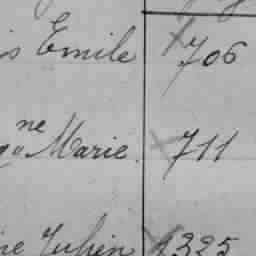 is Emile 706
ne Marie. 711
ne Julien 1325